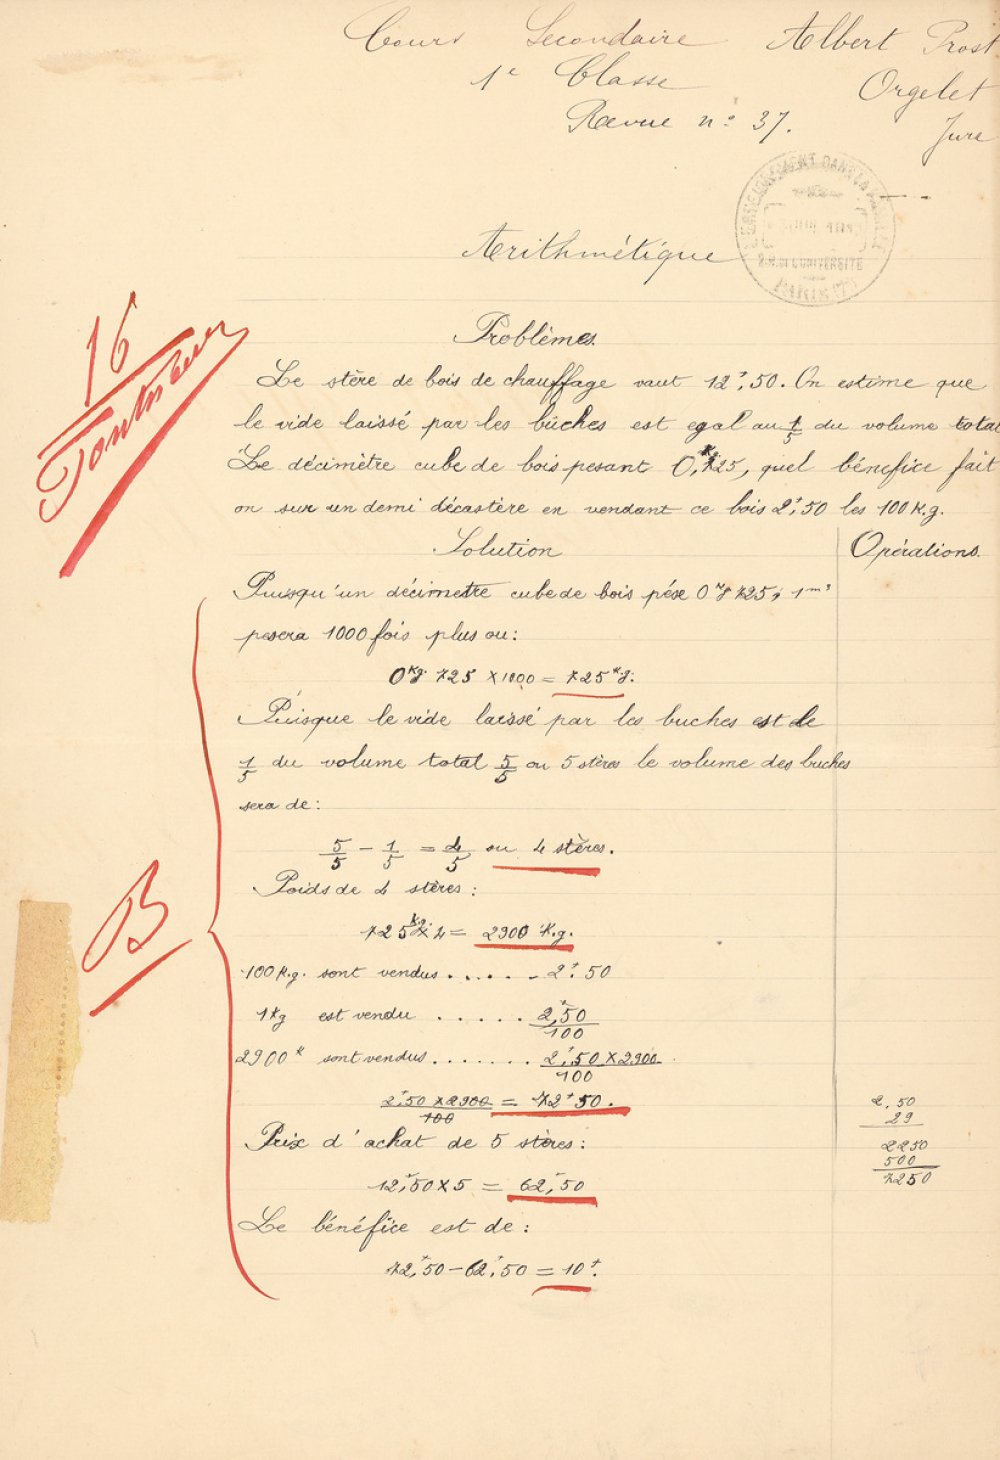 Cours Secondaire Albert Prost
1e Classe Orgelet
Revue n° 37. Jura
L'ENSEIGNEMENT DANS LA FAMILLE
2 R. DE L'UNIVERSITÉ
PARIS (7e)
Arithmétique
16
Problèmes
Le stère de bois de chauffage vaut 12f,50. On estime que
le vide laissé par les bûches est egal au 1/5 du volume total
Le décimètre cube de bois pesant 0,Kg725, quel bénéfice fait
on sur un demi décastère en vendant ce bois 2f,50 les 100 K.g.
Solution Opérations.
Puisqu'un décimetre cube de bois pése 0Kg 725, 1m3
pesera 1000 fois plus ou:
0Kg. 725 × 1000 = 725Kg.
Puisque le vide laissé par les buches est de
1/5 du volume total 5/5 ou 5 stères le volume des buches
sera de:
5/5 - 1/5 = 4/5 ou 4 stères.
Poids de 4 stères:
B
725Kg. × 4 = 2900 K.g.
100 K.g. sont vendus...... 2f.50
1Kg est vendu ..... 2f,50/100
2900K sont vendus....... 2f,50 × 2900/100
2f,50 × 2900/100 = 72f50. 2,50
29
Prix d'achat de 5 stères: 2250
500
12f,50 × 5 = 62f,50 7250
Le bénéfice est de:
72f,50 - 62f,50 = 10f.